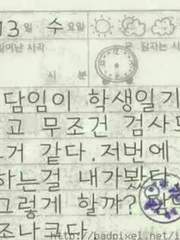 13일 수요일
일어난 시각 잠자는 시
시 분
담임이 학생일기
고 무조건 검사도
거 같다. 저번에
하는걸 내가봤다
그렇게 할까?
조나크다
http://badpixel.net/i